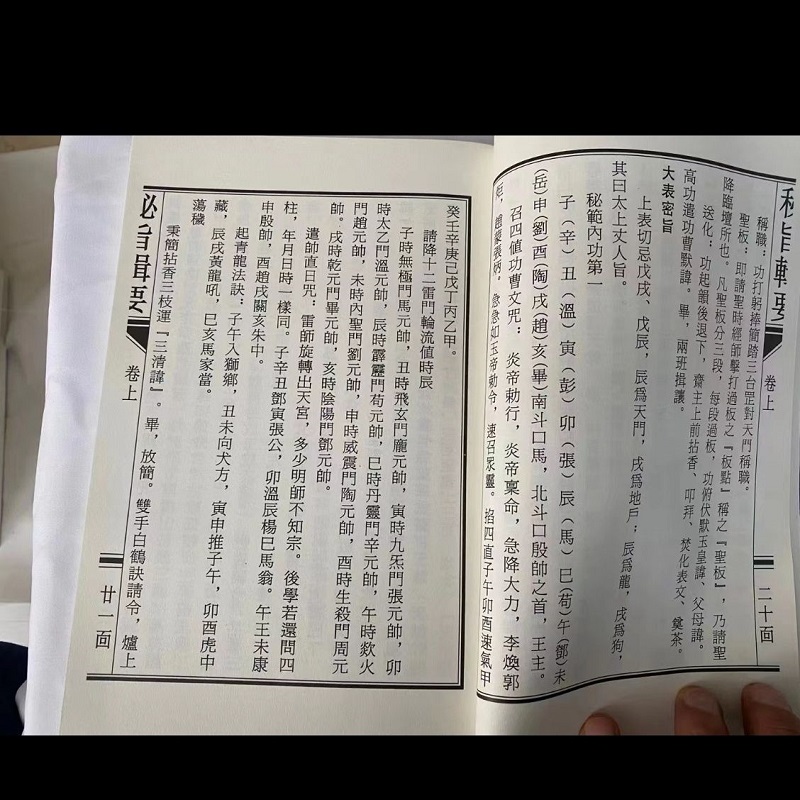 秘旨輯要
卷上
二十面
稱職：功打躬捧簡踏三台罡對天門稱職。
聖板：即請聖時經師擊打過板之『板點』稱之『聖板』，乃請聖
降臨壇所也。凡聖板分三段，每段過板，功俯伏默玉皇諱、父母諱。
送化：功起韻後退下，齋主上前拈香、叩拜、焚化表文、奠茶。
高功遣功曹默諱。畢，兩班揖讓。
大表密旨
上表切忌戊戌、戊辰，辰爲天門，戌爲地戶；辰爲龍，戌爲狗，
其曰太上丈人旨。
秘範內功第一
子（辛）丑（溫）寅（彭）卯（張）辰（馬）巳（苟）午（鄧）未
（岳）申（劉）酉（陶）戌（趙）亥（畢）南斗口馬，北斗口殷帥之首，王主。
召四值功曹文咒：炎帝勅行，炎帝稟命，急降大力，李煥郭
急急如玉帝勅令，速召眾靈。掐四直子午卯酉速氣甲
癸壬辛庚己戊丁丙乙甲。
請降十二雷門輪流值時辰
子時無極門馬元帥，丑時飛玄門龐元帥，寅時九炁門張元帥，卯
時太乙門溫元帥，辰時霹靂門苟元帥，巳時丹靈門辛元帥，午時歘火
門趙元帥，未時內聖門劉元帥，申時威震門陶元帥，酉時生殺門周元
帥。戌時乾元門畢元帥，亥時陰陽門鄧元帥。
遣師直日咒：雷師旋轉出天宮，多少明師不知宗。後學若還問四
柱，年月日時一樣同。子辛丑鄧寅張公，卯溫辰楊巳馬翁。午王未康
申殷帥，酉趙戌關亥朱中。
起青龍法訣：子午入獅鄉，丑未向犬方，寅申推子午，卯酉虎中
藏，辰戌黃龍吼，巳亥馬家當。
蕩穢
秉簡拈香三枝運『三清諱』。畢，放簡。雙手白鶴訣請令，爐上
秘旨輯要
卷上
廿一面